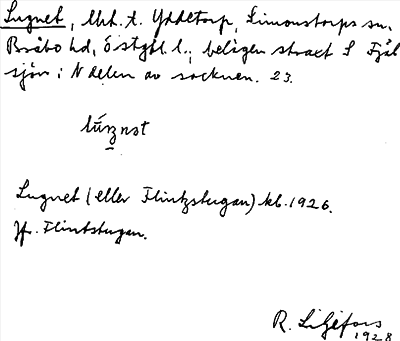 Lugnet, lht. t. Yddetorp, Simonstorps sn.
Bråbo hd, Östgtl. l., belägen strax S Fjäl
sjön i N delen av socknen. 23.
Lugnet (eller Flintzstugan) kb. 1926.
Jfr. Flintstugan.
R. Liljefors
1928